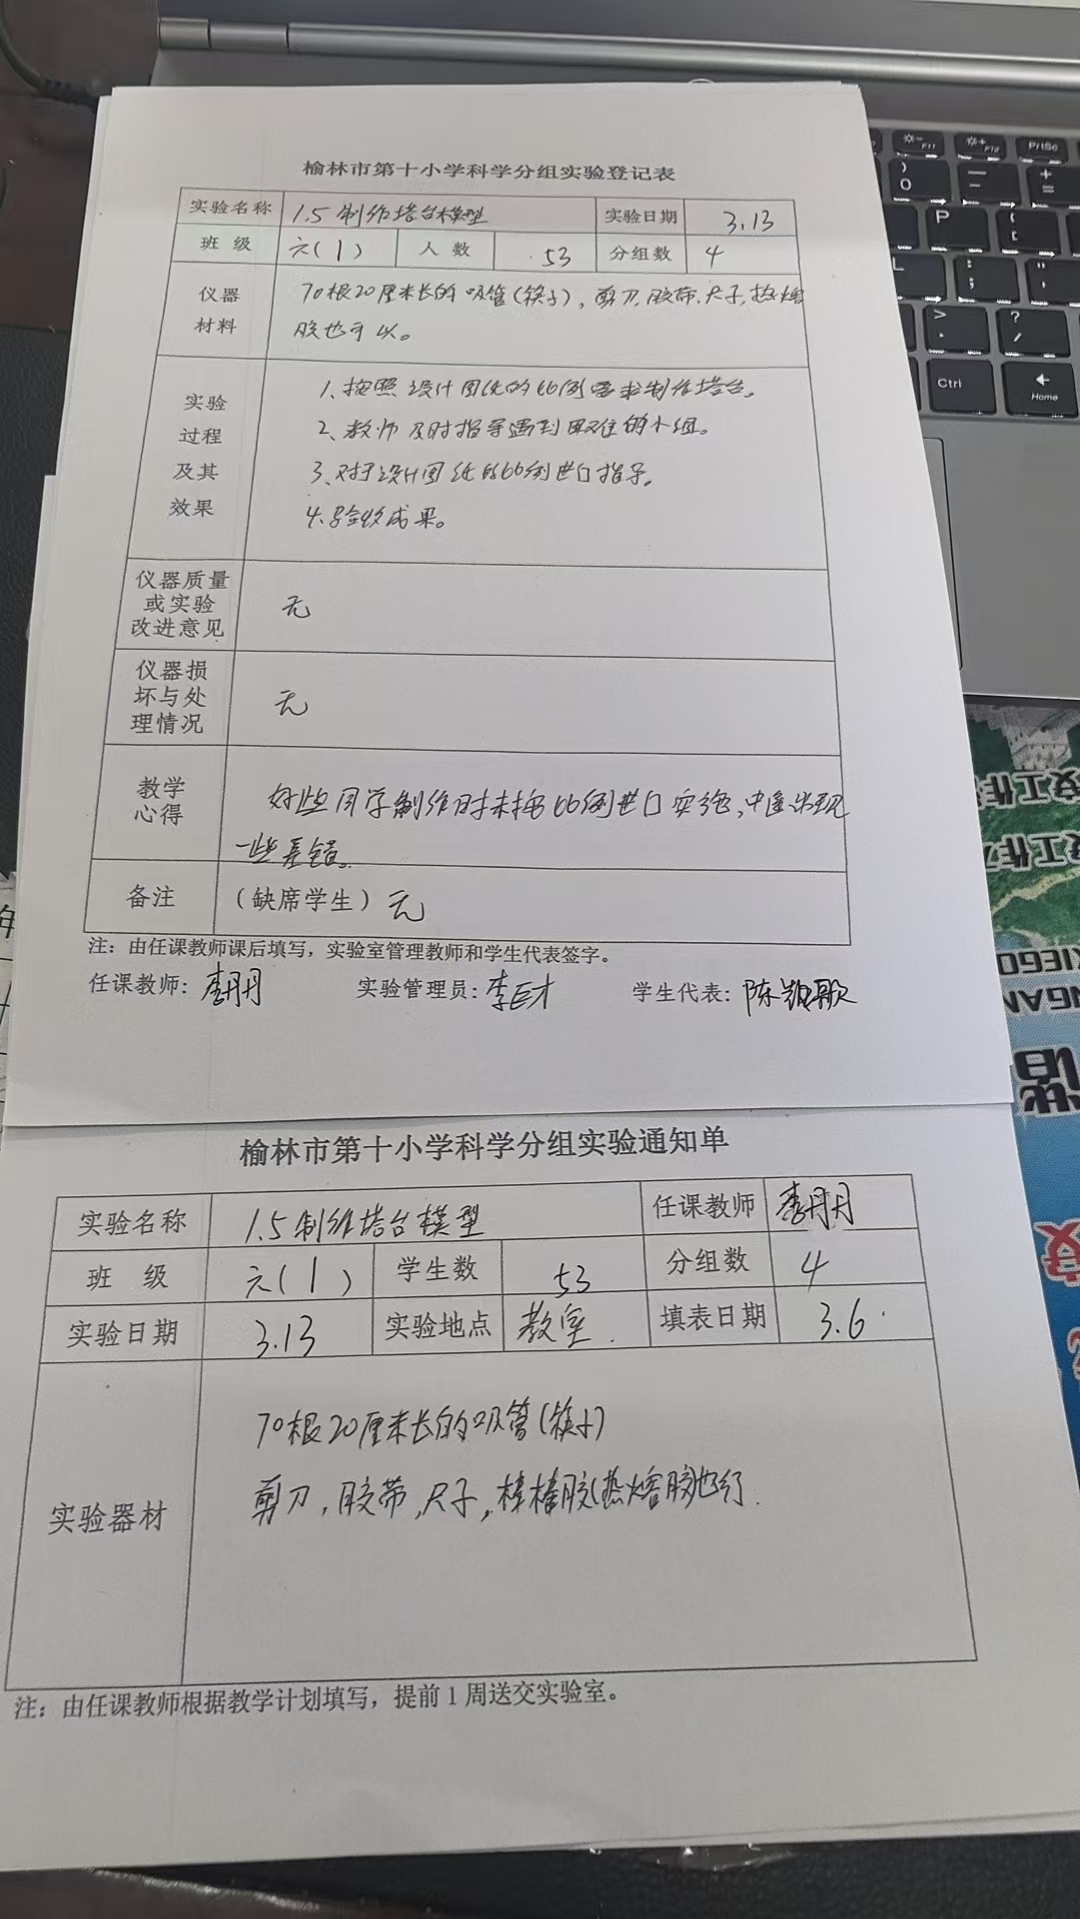 榆林市第十小学科学分组实验登记表
实验名称 1.5 制作塔台模型 实验日期 3.13
班 级 六(1) 人 数 53 分组数 4
仪器 70根20厘米长的吸管(筷子),剪刀,胶带,尺子,热熔
材料 胶也可以。
实验 1、按照设计图纸的比例要求制作塔台。
过程 2、教师及时指导遇到困难的小组。
及其 3、对于设计图纸的比例进口指导。
效果 4、验收成果。
仪器质量
或实验 无
改进意见
仪器损
坏与处 无
理情况
教学 好些同学制作时未按比例进口实验,中途出现
心得 一些差错。
备注 (缺席学生) 无
注：由任课教师课后填写，实验室管理教师和学生代表签字。
任课教师：李丹丹 实验管理员：李巨才 学生代表：陈凯歌
榆林市第十小学科学分组实验通知单
实验名称 1.5 制作塔台模型 任课教师 李丹丹
班 级 六(1) 学生数 53 分组数 4
实验日期 3.13 实验地点 教室. 填表日期 3.6.
70根20厘米长的吸管(筷子)
实验器材 剪刀,胶带,尺子,棒棒胶(热熔胶)也行.
注：由任课教师根据教学计划填写，提前1周送交实验室。
F11
F12
PrtSc
)
0
P
L
Ctrl
Home